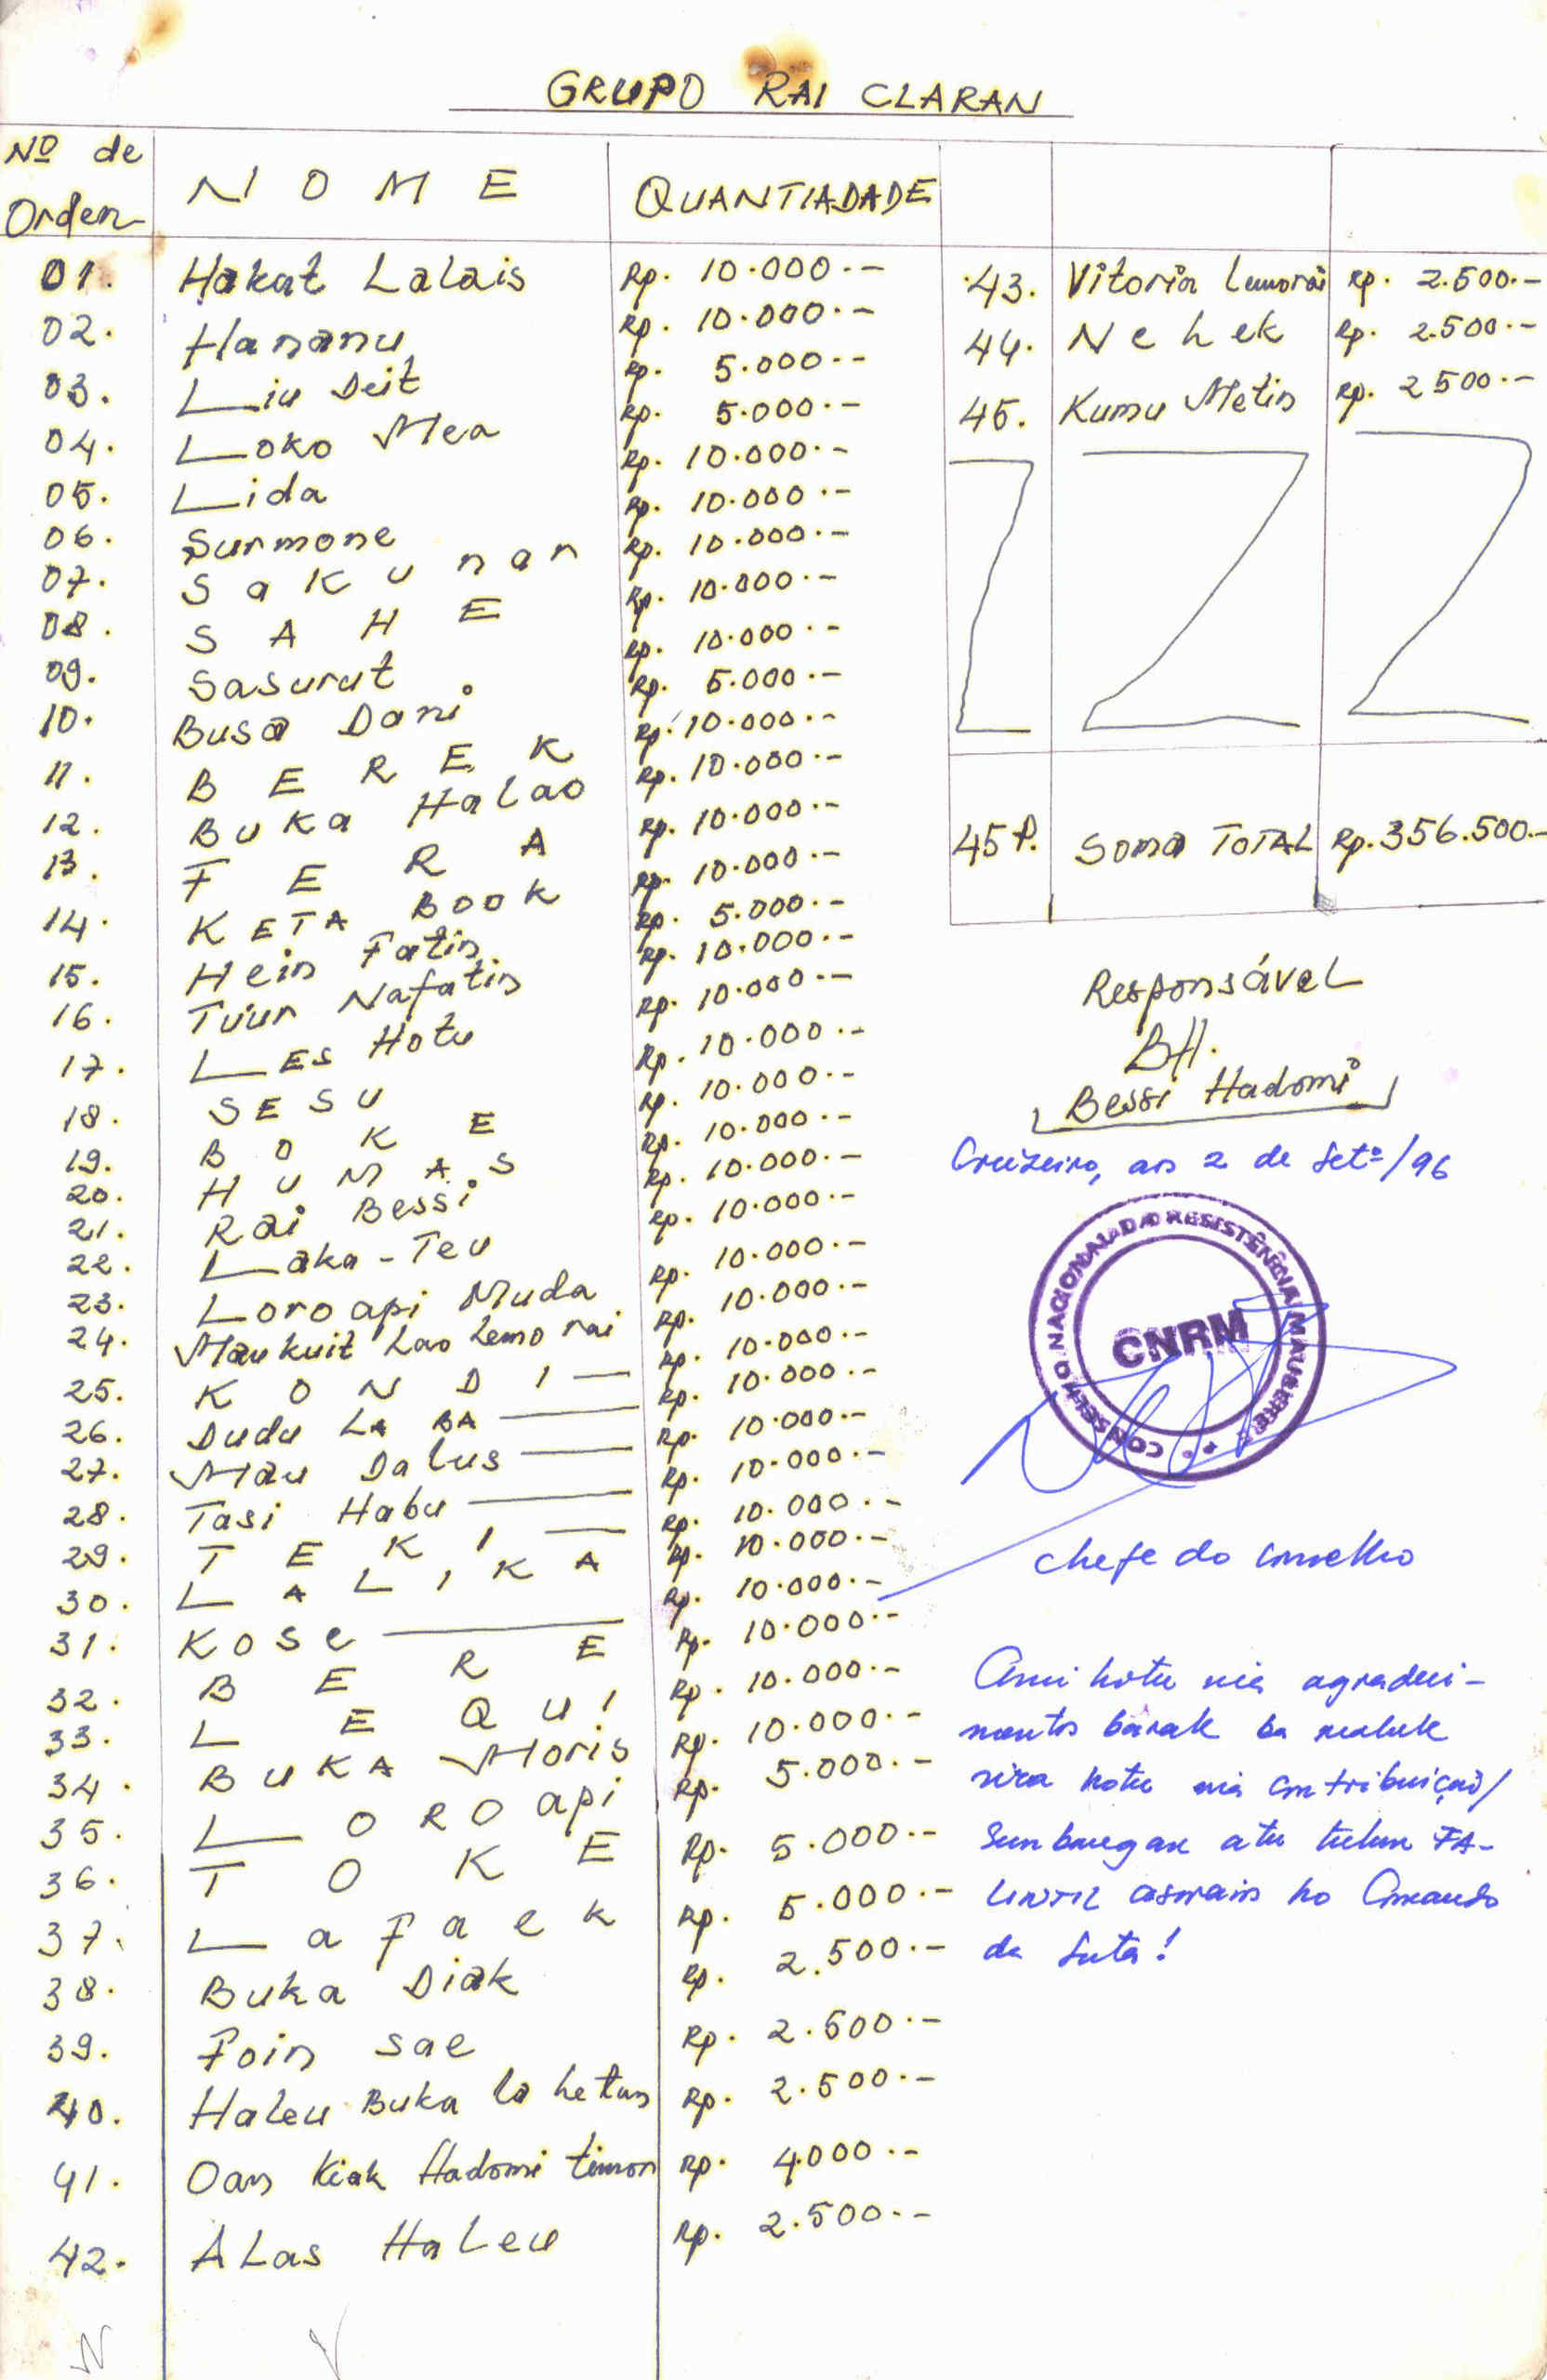 GRUPO RAI CLARAN
Nº de Orden NOME QUANTIADADE
01. Hakat Lalais Rp. 10.000.--
02. Hananu Rp. 10.000.--
03. Liu Deit Rp. 5.000.--
04. Loko Mea Rp. 5.000.--
05. Lida Rp. 10.000.--
06. Surmone Rp. 10.000.--
07. Sakunar Rp. 10.000.--
08. SAHE Rp. 10.000.--
09. Sasurut Rp. 10.000.--
10. Busa Dani Rp. 5.000.--
11. BEREK Rp. 10.000.--
12. Buka Halao Rp. 10.000.--
13. FERA Rp. 10.000.--
14. KETA BOOK Rp. 10.000.--
15. Hein Fatin Rp. 5.000.--
16. Tu'ur Nafatin Rp. 10.000.--
17. LES Hotu Rp. 10.000.--
18. SESU Rp. 10.000.--
19. BOKE Rp. 10.000.--
20. HUMAS Rp. 10.000.--
21. Rai Bessi Rp. 10.000.--
22. Laka-Teu Rp. 10.000.--
23. Loro api Muda Rp. 10.000.--
24. Maukuit Lao Lemo rai Rp. 10.000.--
25. KONDI — Rp. 10.000.--
26. Dudu LA BA — Rp. 10.000.--
27. Mau Dalus — Rp. 10.000.--
28. Tasi Habu — Rp. 10.000.--
29. TEKI — Rp. 10.000.--
30. LALIKA Rp. 10.000.--
31. Kose — Rp. 10.000.--
32. BERE Rp. 10.000.--
33. LEQUI Rp. 10.000.--
34. BUKA Moris Rp. 10.000.--
35. LORO api Rp. 5.000.--
36. TOKE Rp. 5.000.--
37. Lafaek Rp. 5.000.--
38. Buka Diak Rp. 2.500.--
39. Foin sae Rp. 2.500.--
40. Haleu Buka la hetan Rp. 2.500.--
41. Oan Kiak Hadomi timor Rp. 4.000.--
42. ALas HaLeu Rp. 2.500.--
43. Vitoria Lemorai Rp. 2.500.--
44. Nehek Rp. 2.500.--
45. Kumu Metin Rp. 2500.--
45 P. Soma TOTAL Rp. 356.500.--
Responsável
BH.
Bessi Hadomi
Cruzeiro, aos 2 de Setº/96
CONSELHO NACIONAL DA RESISTÊNCIA MAUBERE
CNRM
Chefe do Conselho
Ami hotu nia agradeci-
mentos barak ba maluk
sira hotu nia contribuição/
Sumbangan atu tulun FA-
LINTIL aswain ho Comando
da Luta!